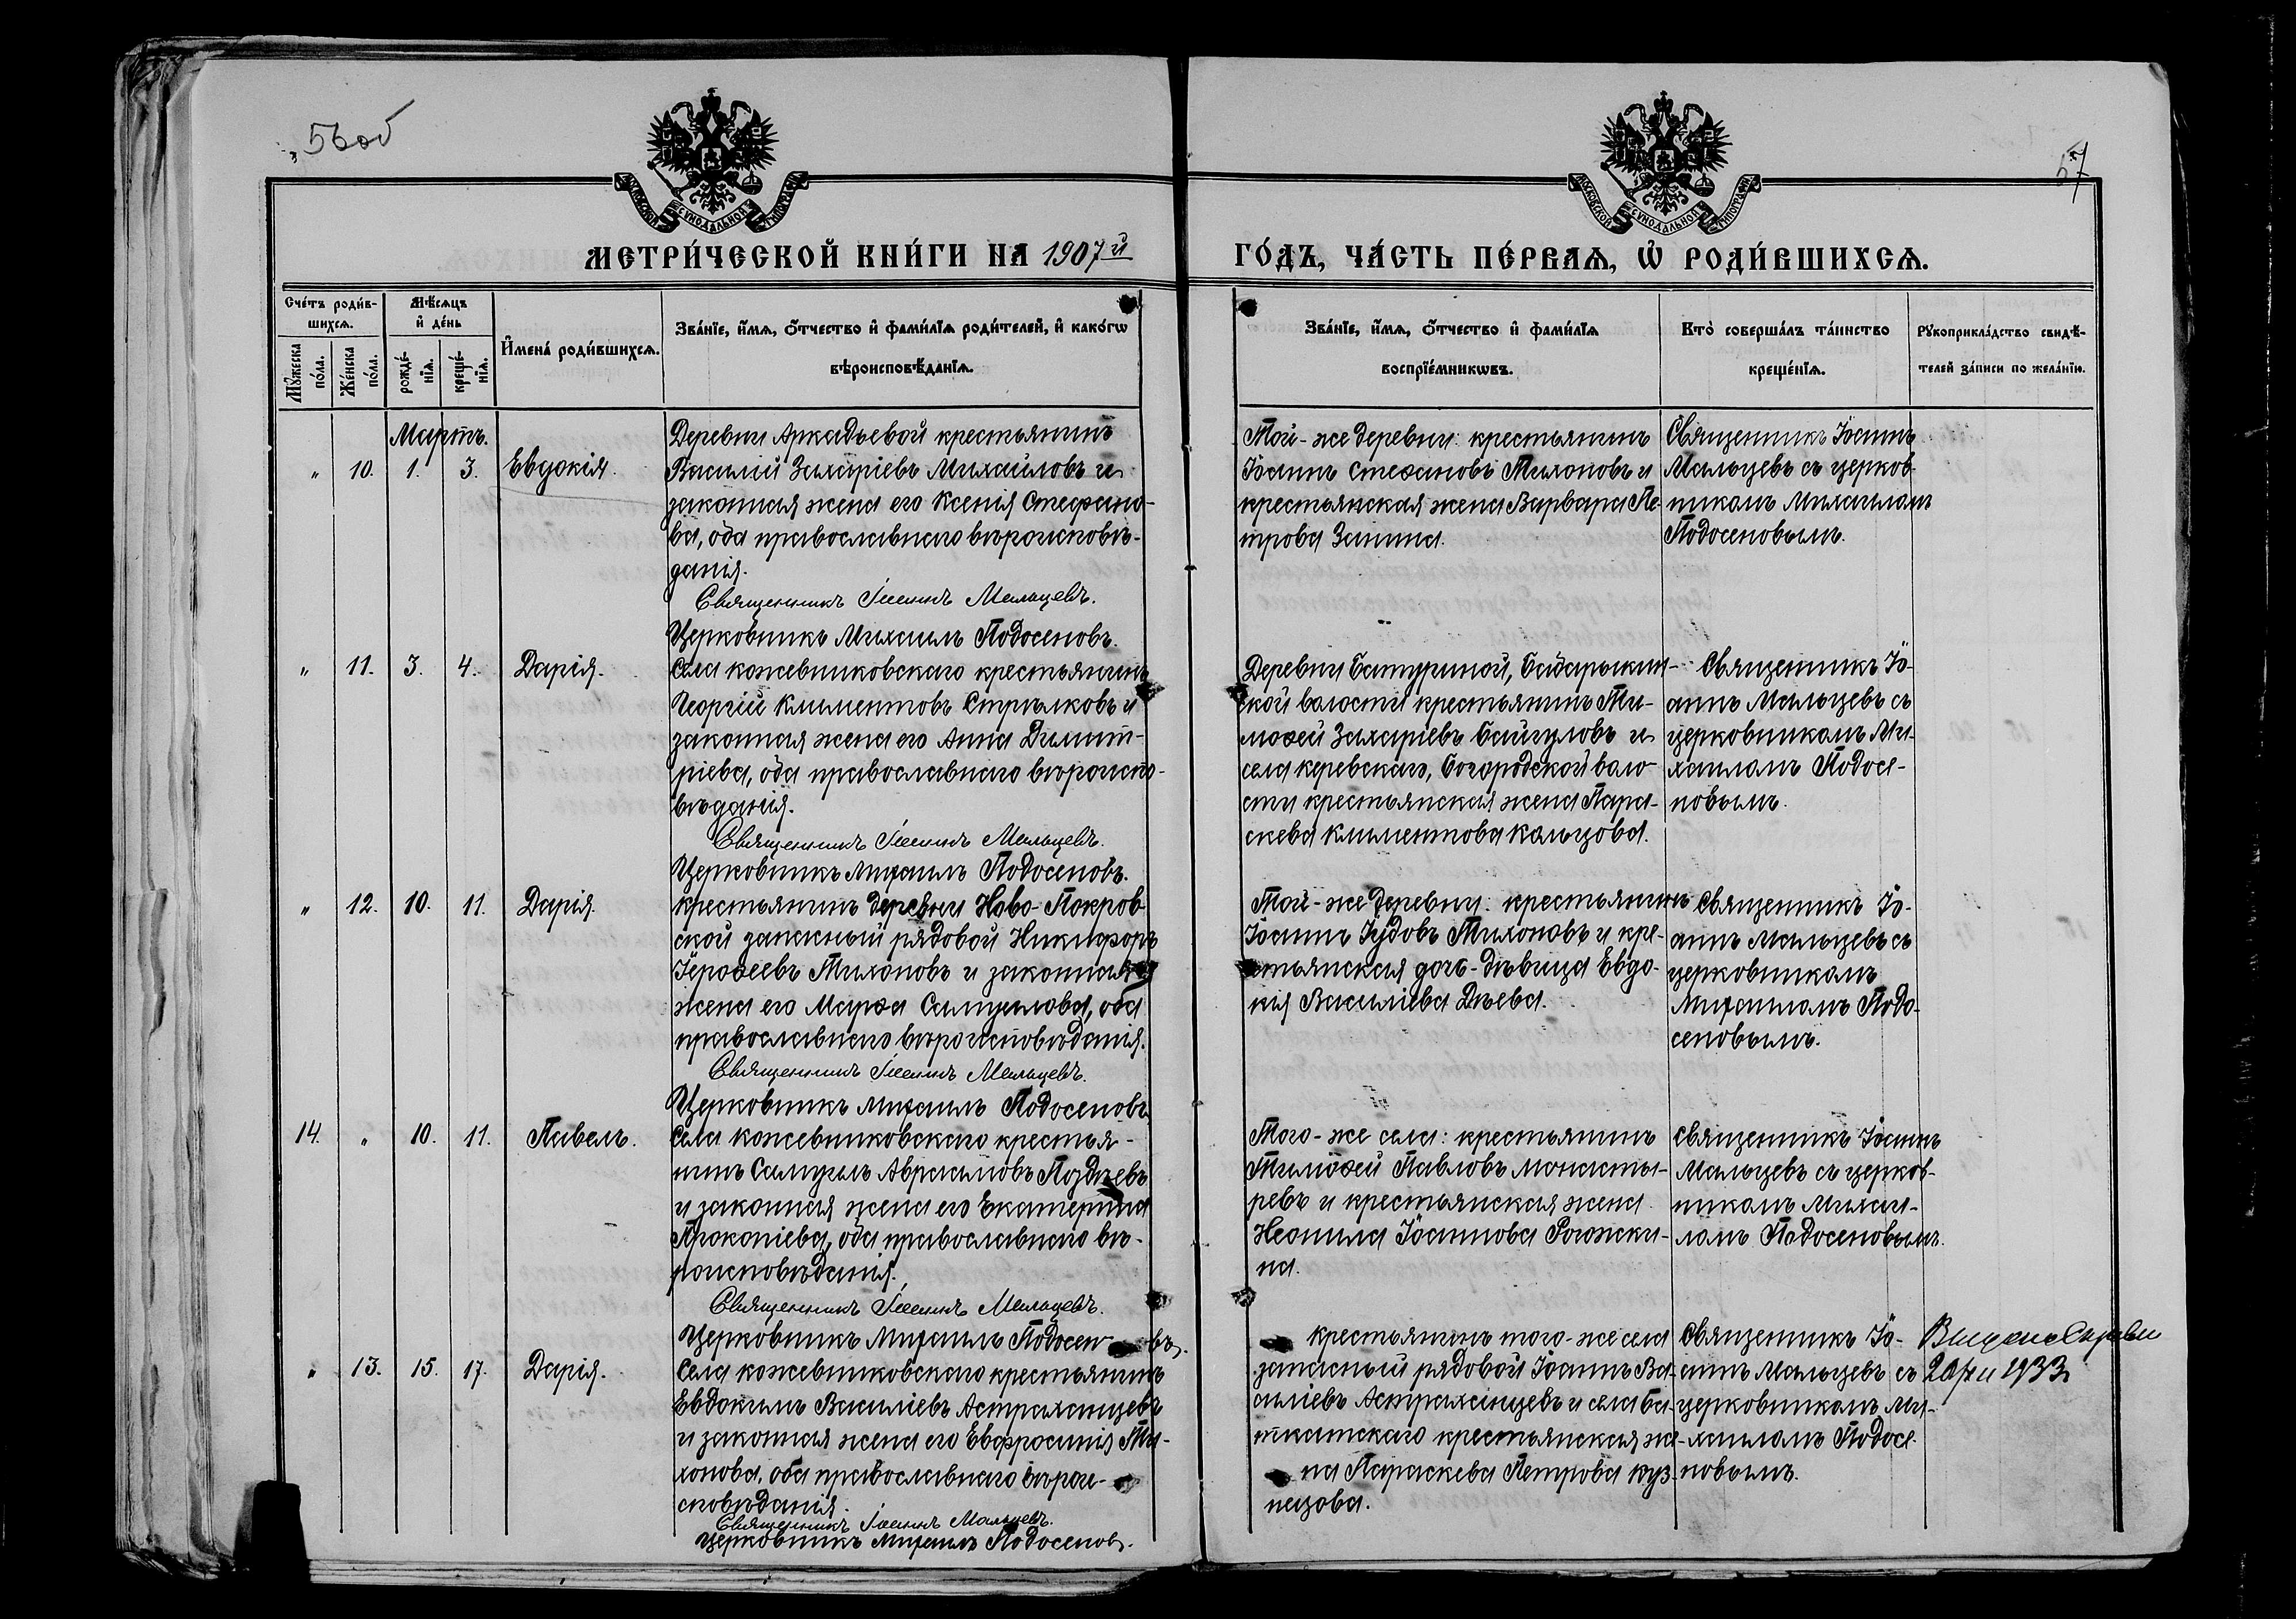 56об
57
МОСКОВСКОЙ СѴНОДАЛЬНОЙ ТИПОГРАФІИ
МОСКОВСКОЙ СѴНОДАЛЬНОЙ ТИПОГРАФІИ
МЕТРИ́ЧЕСКОЙ КНИ́ГИ НА 1907й
ГО́ДЪ, ЧА́СТЬ ПЕ́РВАЯ, Ѡ РОДИ́ВШИХСЯ.
Сче́тъ роди́в-
шихся.
Мѣ́сяцъ
и де́нь
Мꙋ́жеска
по́ла.
Же́нска
по́ла.
рожде́-
нїя.
креще́-
нїя.
И҆мена̀ роди́вшихся.
Зва́нїе, и҆́мя, ѻ҆́тчество и҆ фами́лїя роди́телей, и҆ како́гѡ
вѣроисповѣ́данїя.
Зва́нїе, и҆́мя, ѻ҆́тчество и҆ фами́лїя
воспрїе́мникѡвъ.
Кто̀ соверша́лъ та́инство
креще́нїя.
Рꙋкоприкла́дство свидѣ́-
телей за́писи по жела́нїю.
Мартъ.
" 10. 1. 3. Евдокія.
Деревни Аркадьевой крестьянинъ
Василій Захаріевъ Михайловъ и
законная жена его Ксенія Стефано-
ва, оба православнаго вѣроисповѣ-
данія.
Священникъ Іоаннъ Мальцевъ.
Церковникъ Михаилъ Подосеновъ.
Той-же деревни: крестьянинъ
Іоаннъ Стефановъ Тихоновъ и
крестьянская жена Варвара Пе-
трова Зимина.
Священникъ Іоаннъ
Мальцевъ съ церков-
никомъ Михаиломъ
Подосеновымъ.
" 11. 3. 4. Дарія.
Села Кожевниковскаго крестьянинъ
Георгій Климентовъ Стрѣлковъ и
законная жена его Анна Димит-
ріева, оба православнаго вѣроиспо-
вѣданія.
Священникъ Іоаннъ Мальцевъ.
Церковникъ Михаилъ Подосеновъ.
Деревни Батуриной,
ской волости крестьянинъ Ти-
мофей Захаріевъ Байгуловъ и
села Керевскаго, Богородской воло-
сти крестьянская жена Пара-
скева Климентова Кальцова.
Священникъ Іо-
аннъ Мальцевъ съ
церковникомъ Ми-
хаиломъ Подосе-
новымъ.
" 12. 10. 11. Дарія.
Крестьянинъ деревни Ново-Покров-
ской запасный рядовой Никифоръ
Іерофеевъ Тихоновъ и законная
жена его Марфа Самуилова, оба
православнаго вѣроисповѣданія.
Священникъ Іоаннъ Мальцевъ.
Церковникъ Михаилъ Подосеновъ.
Той-же деревни: крестьянинъ
Іоаннъ Іудовъ Тихоновъ и кре-
стьянская дочь-дѣвица Евдо-
кія Василіева Дѣева.
Священникъ Іо-
аннъ Мальцевъ съ
церковникомъ
Михаиломъ Подо-
сеновымъ.
14. " 10. 11. Павелъ.
Села Кожевниковскаго крестья-
нинъ Самуилъ Авраамовъ Поздѣевъ
и законная жена его Екатерина
Прокопіева, оба православнаго вѣ-
роисповѣданія.
Священникъ Іоаннъ Мальцевъ.
Церковникъ Михаилъ Подосеновъ.
Того-же села: крестьянинъ
Тимофей Павловъ Монасты-
ревъ и крестьянская жена
Неонила Іоаннова Рогожки-
на.
Священникъ Іоаннъ
Мальцевъ съ церков-
никомъ Михаи-
ломъ Подосеновымъ.
" 13. 15. 17. Дарія.
Села Кожевниковскаго крестьянинъ
Евдокимъ Василіевъ Астраханцевъ
и законная жена его Евфросинія Ти-
хонова, оба православнаго вѣрои-
сповѣданія.
Священникъ Іоаннъ Мальцевъ.
Церковникъ Михаилъ Подосеновъ.
Крестьянинъ того-же села
запасный рядовой Іоаннъ Ва-
силіевъ Астраханцевъ и села Ба-
ткатскаго крестьянская же-
на Параскева Петрова Куз-
нецова.
Священникъ Іо-
аннъ Мальцевъ съ
церковникомъ Ми-
хаиломъ Подосе-
новымъ.
1933